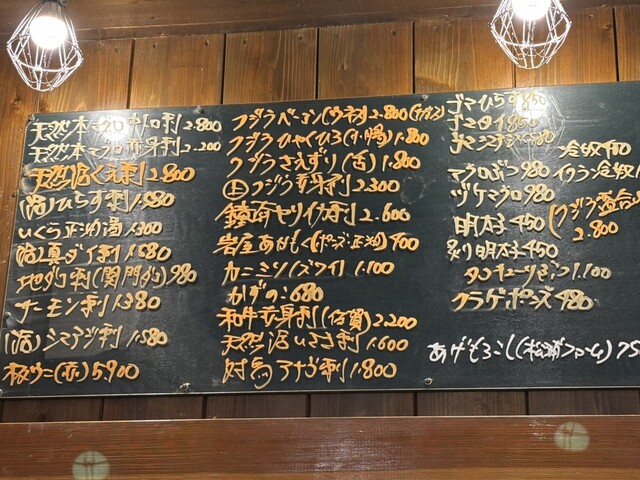 天然本マグロ中トロ刺 2.800
天然本マグロ赤身刺 2.200
天然活くえ刺 2.800
(活)ひらす刺 1.580
いくら正油漬 1.300
活真ダイ刺 1.580
地ダコ刺(関門)980
サーモン刺 1.380
(活)シマアジ刺 1.580
板ウニ(赤)5.900
クジラベーコン(ウネス)2.800
クジラひゃくひろ(小腸)1.800
クジラさえずり(舌)1.800
上クジラ赤身刺 2.300
鎮西ヤリイカ刺 2.600
岩屋あかもく(ポン酢・正油)400
カニミソ(ズワイ)1.100
かずのこ 680
和牛赤身刺(佐賀)2.200
天然活いさき刺 1.600
対馬アナゴ刺 1.800
ゴマひらす 850
ゴマタイ 850
マグロぶつ 980
ヅケマグロ 980
明太子 450
炙り明太子 450
クラゲポン酢 480
冷奴
イクラ冷奴
クジラ盛合
2.800
あげもろこし(松浦ファーム)